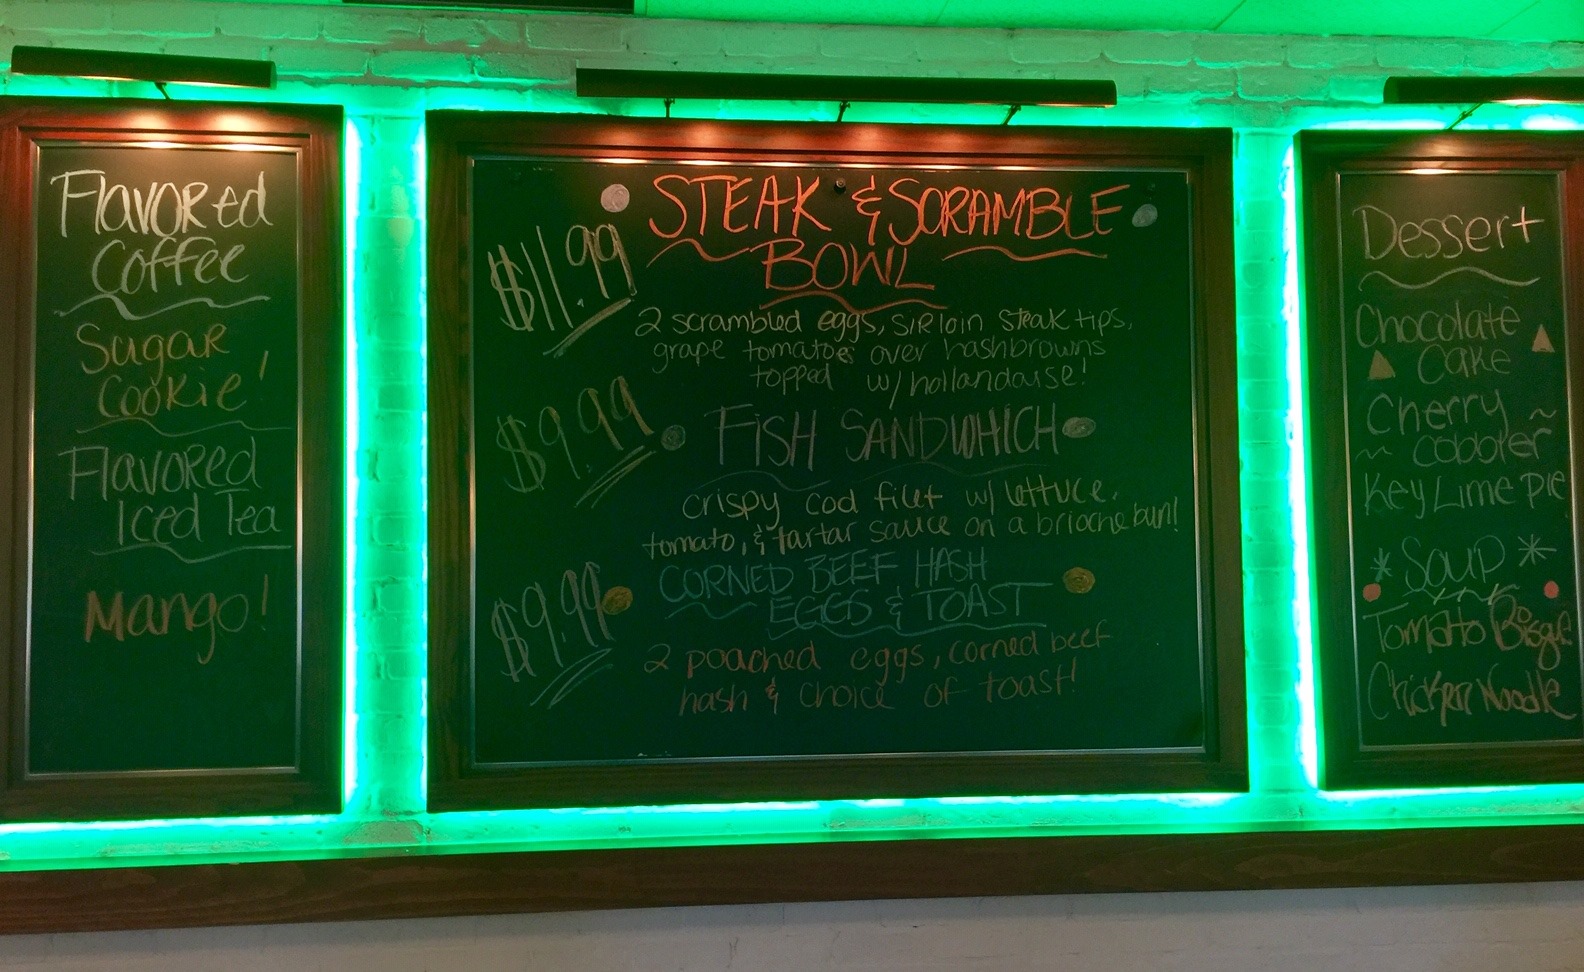 Flavored
Coffee
Sugar
Cookie!
Flavored
Iced Tea
Mango!
STEAK & SCRAMBLE
BOWL
$11.99
2 scrambled eggs, sirloin steak tips,
grape tomatoes over hashbrowns
topped w/ hollandaise!
$9.99
FISH SANDWHICH
crispy cod filet w/ lettuce,
tomato, & tartar sauce on a brioche bun!
$9.99
CORNED BEEF HASH
EGGS & TOAST
2 poached eggs, corned beef
hash & choice of toast!
Dessert
Chocolate
Cake
Cherry ~
~ cobbler
Key Lime Pie
* Soup *
Tomato Bisque
Chicken Noodle